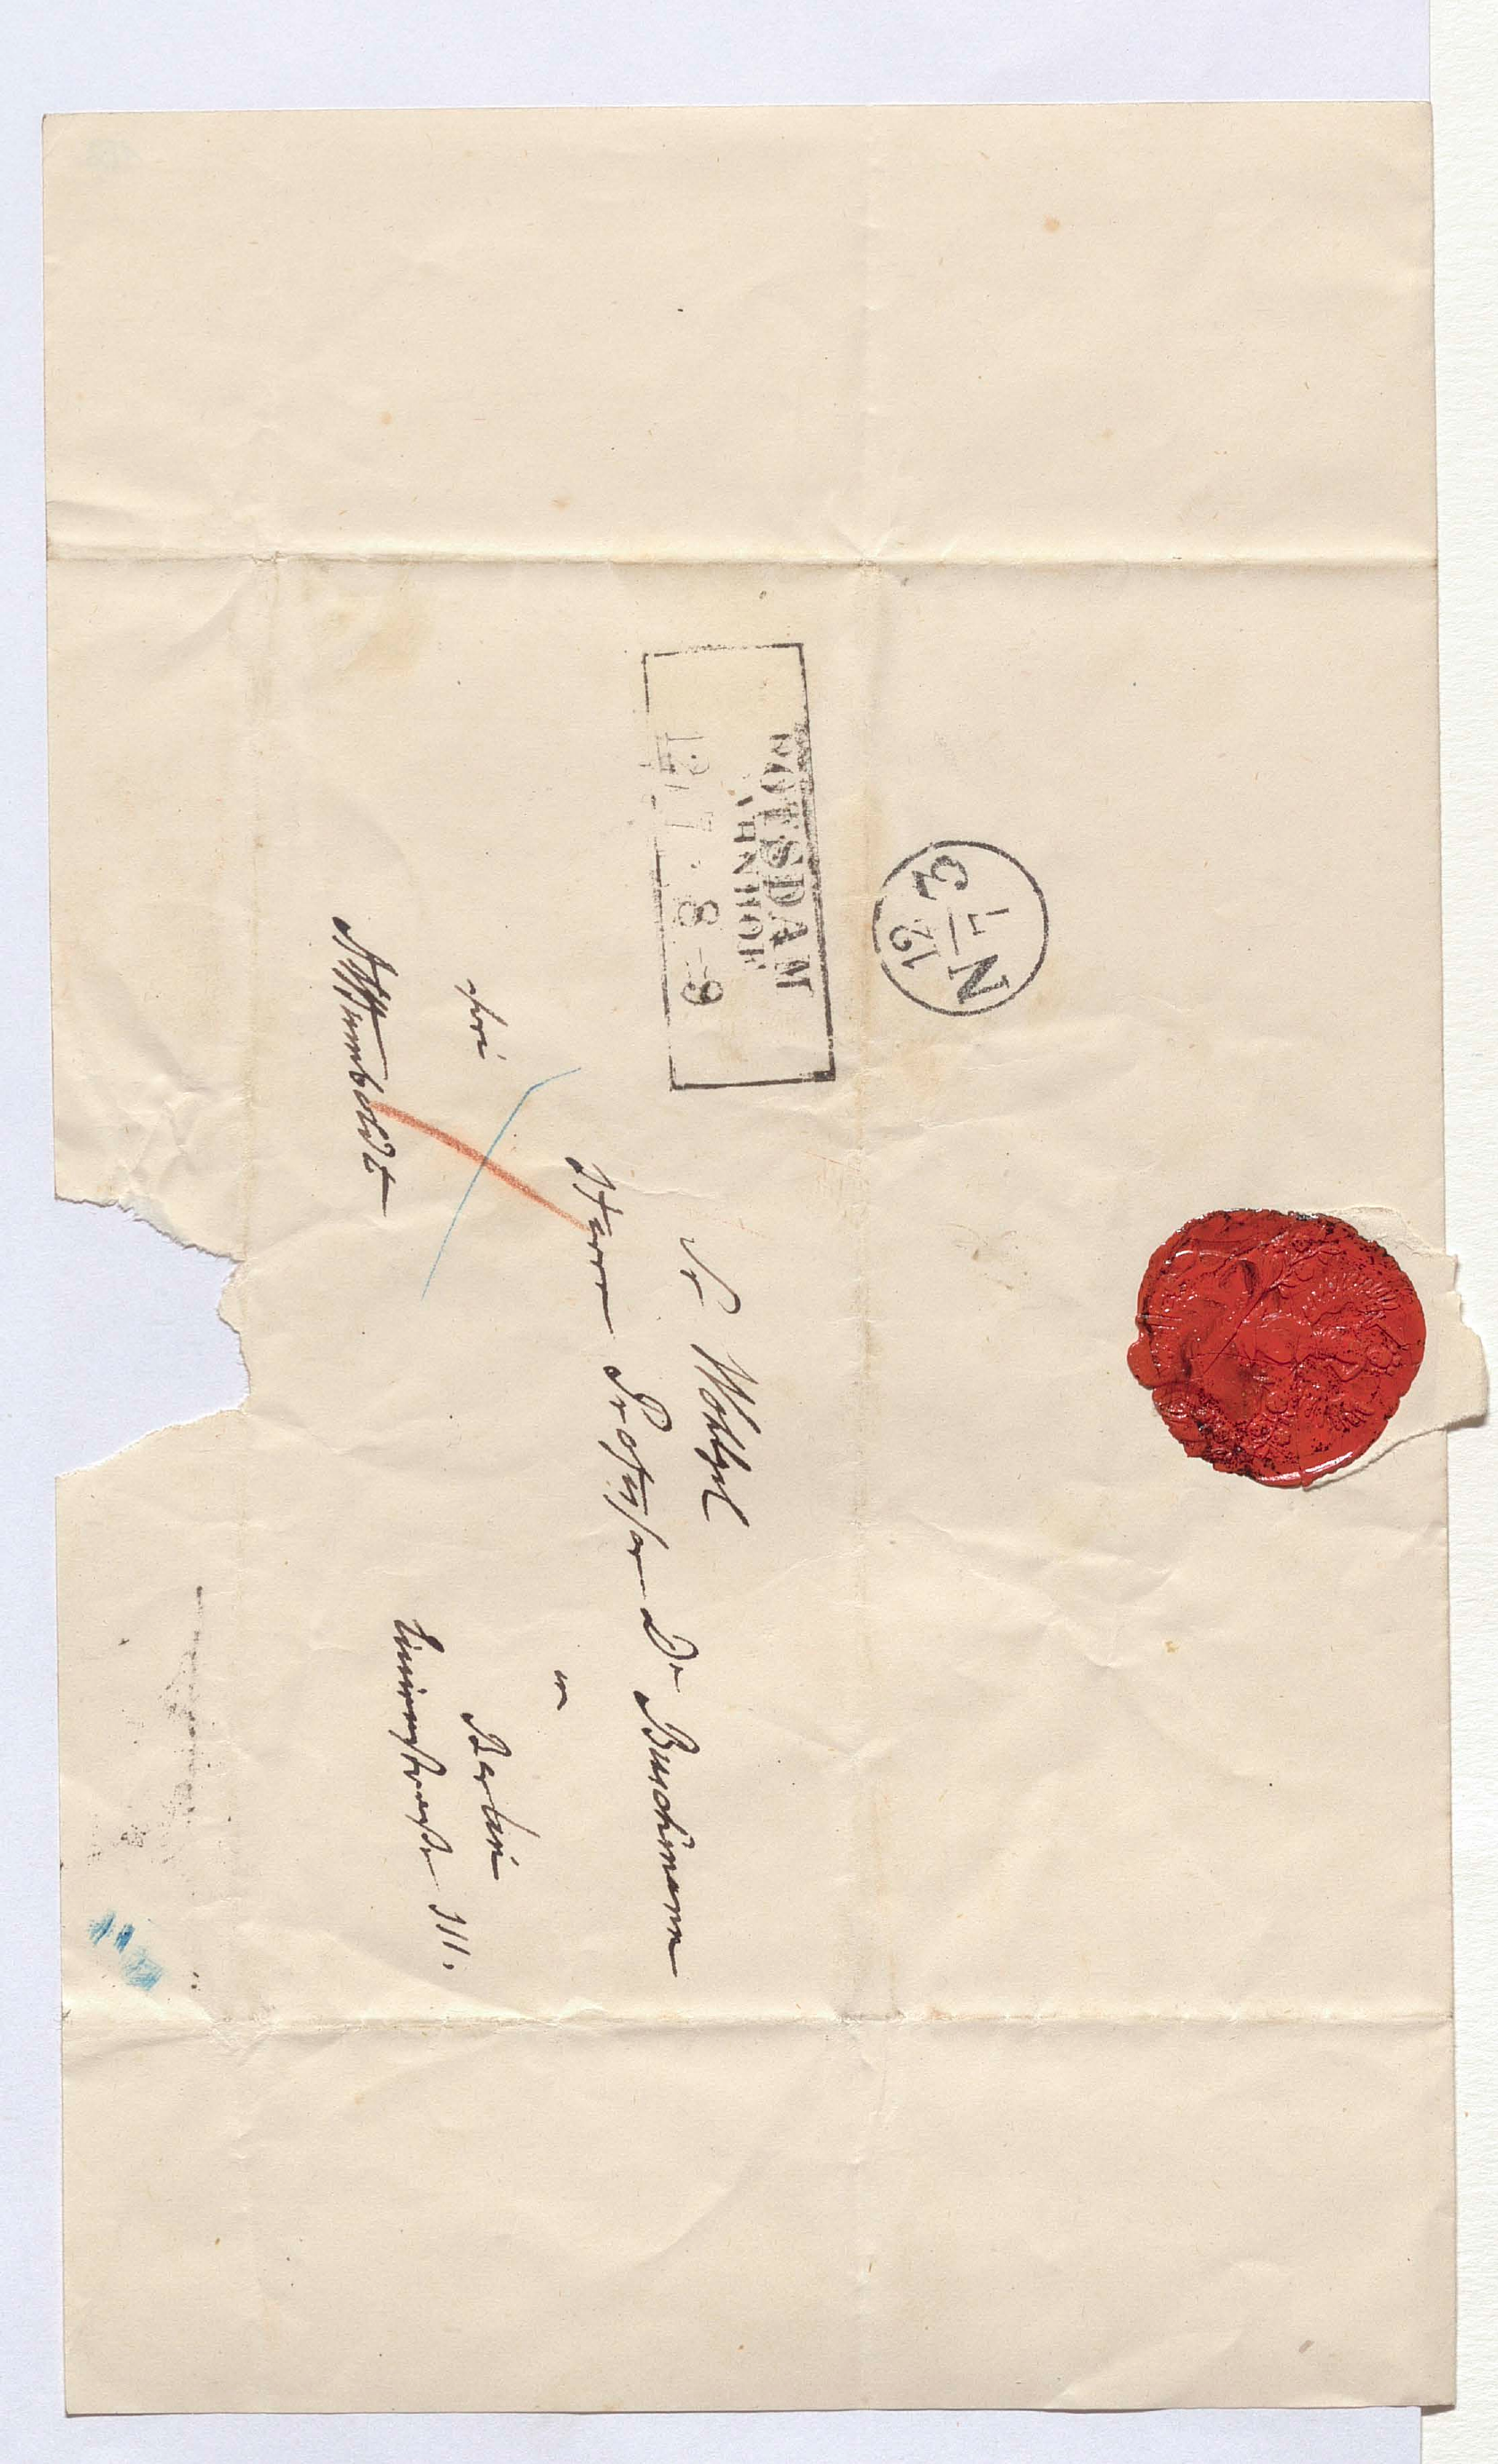 N 3
12 7
POTSDAM
AHNHOF
12 7 8-9
Sr Wohlgel
Herrn Professor Dr Buschmann
in
Berlin
Linienstraße 111.
frei
AvHumboldt